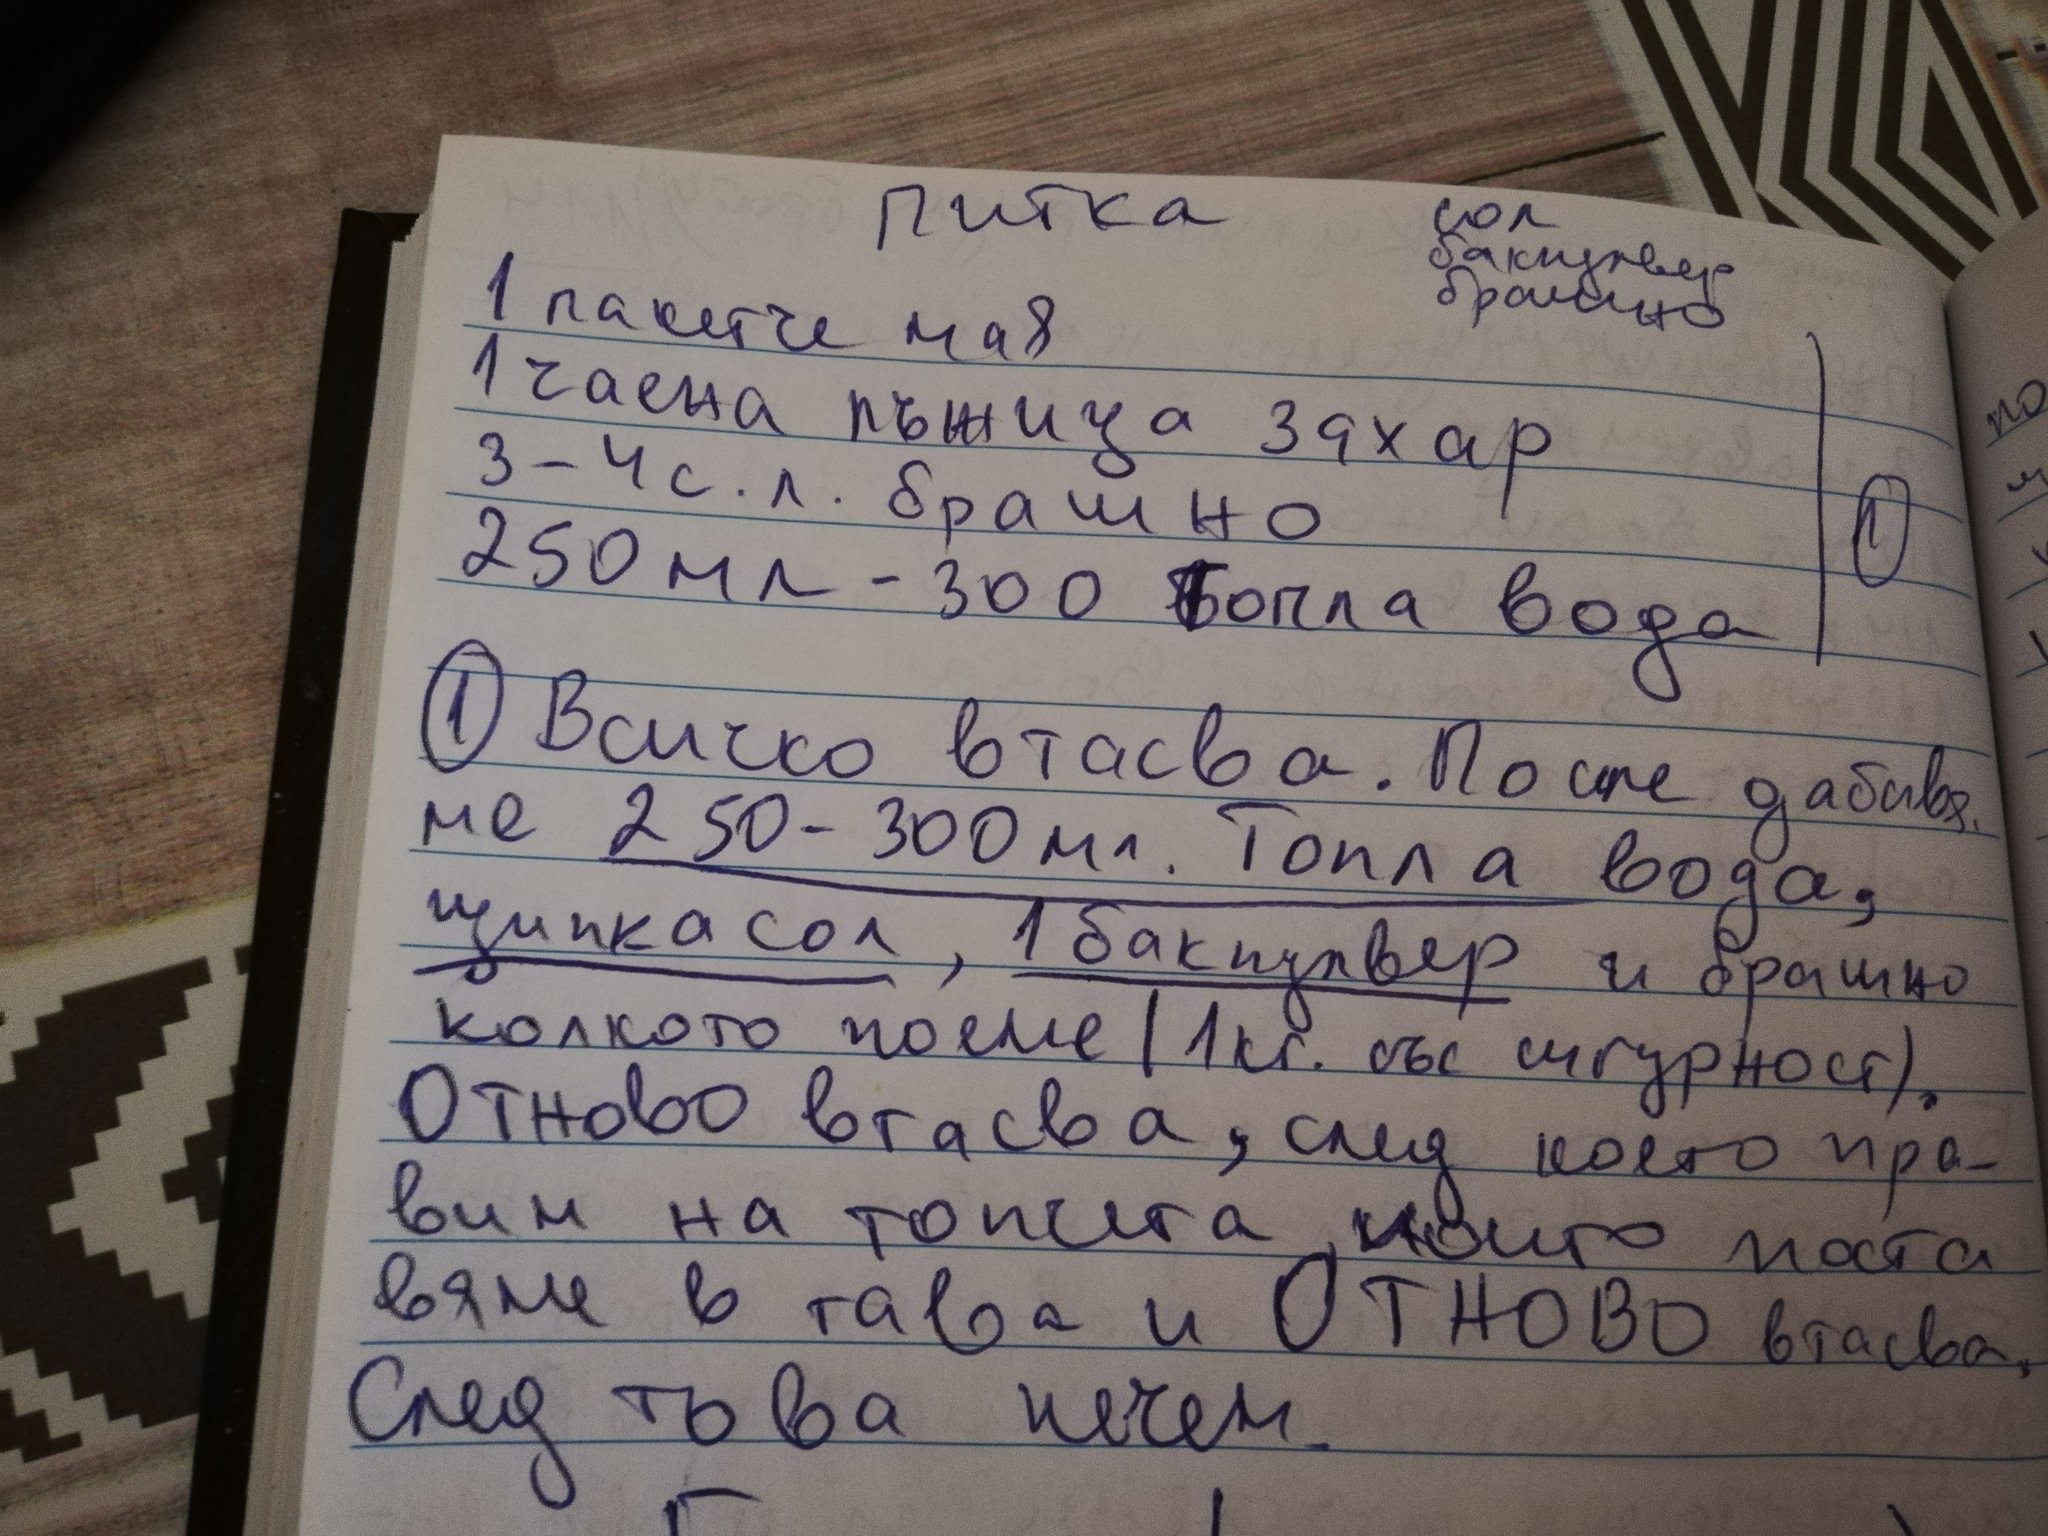 Питка
сол
бакпулвер
брашно
1 пакетче мая
1 чаена лъжица захар
3-4 с.л. брашно
250 мл - 300 топла вода
1
1 Всичко втасва. После дабавя.
ме 250-300 мл. Топла вода,
щипка сол, 1 бакпулвер и брашно
колкото поеме (1 кг. със сигурност).
Отново втасва, след което пра-
вим на топчета които поста
вяме в тава и ОТНОВО втасва.
След това печем.